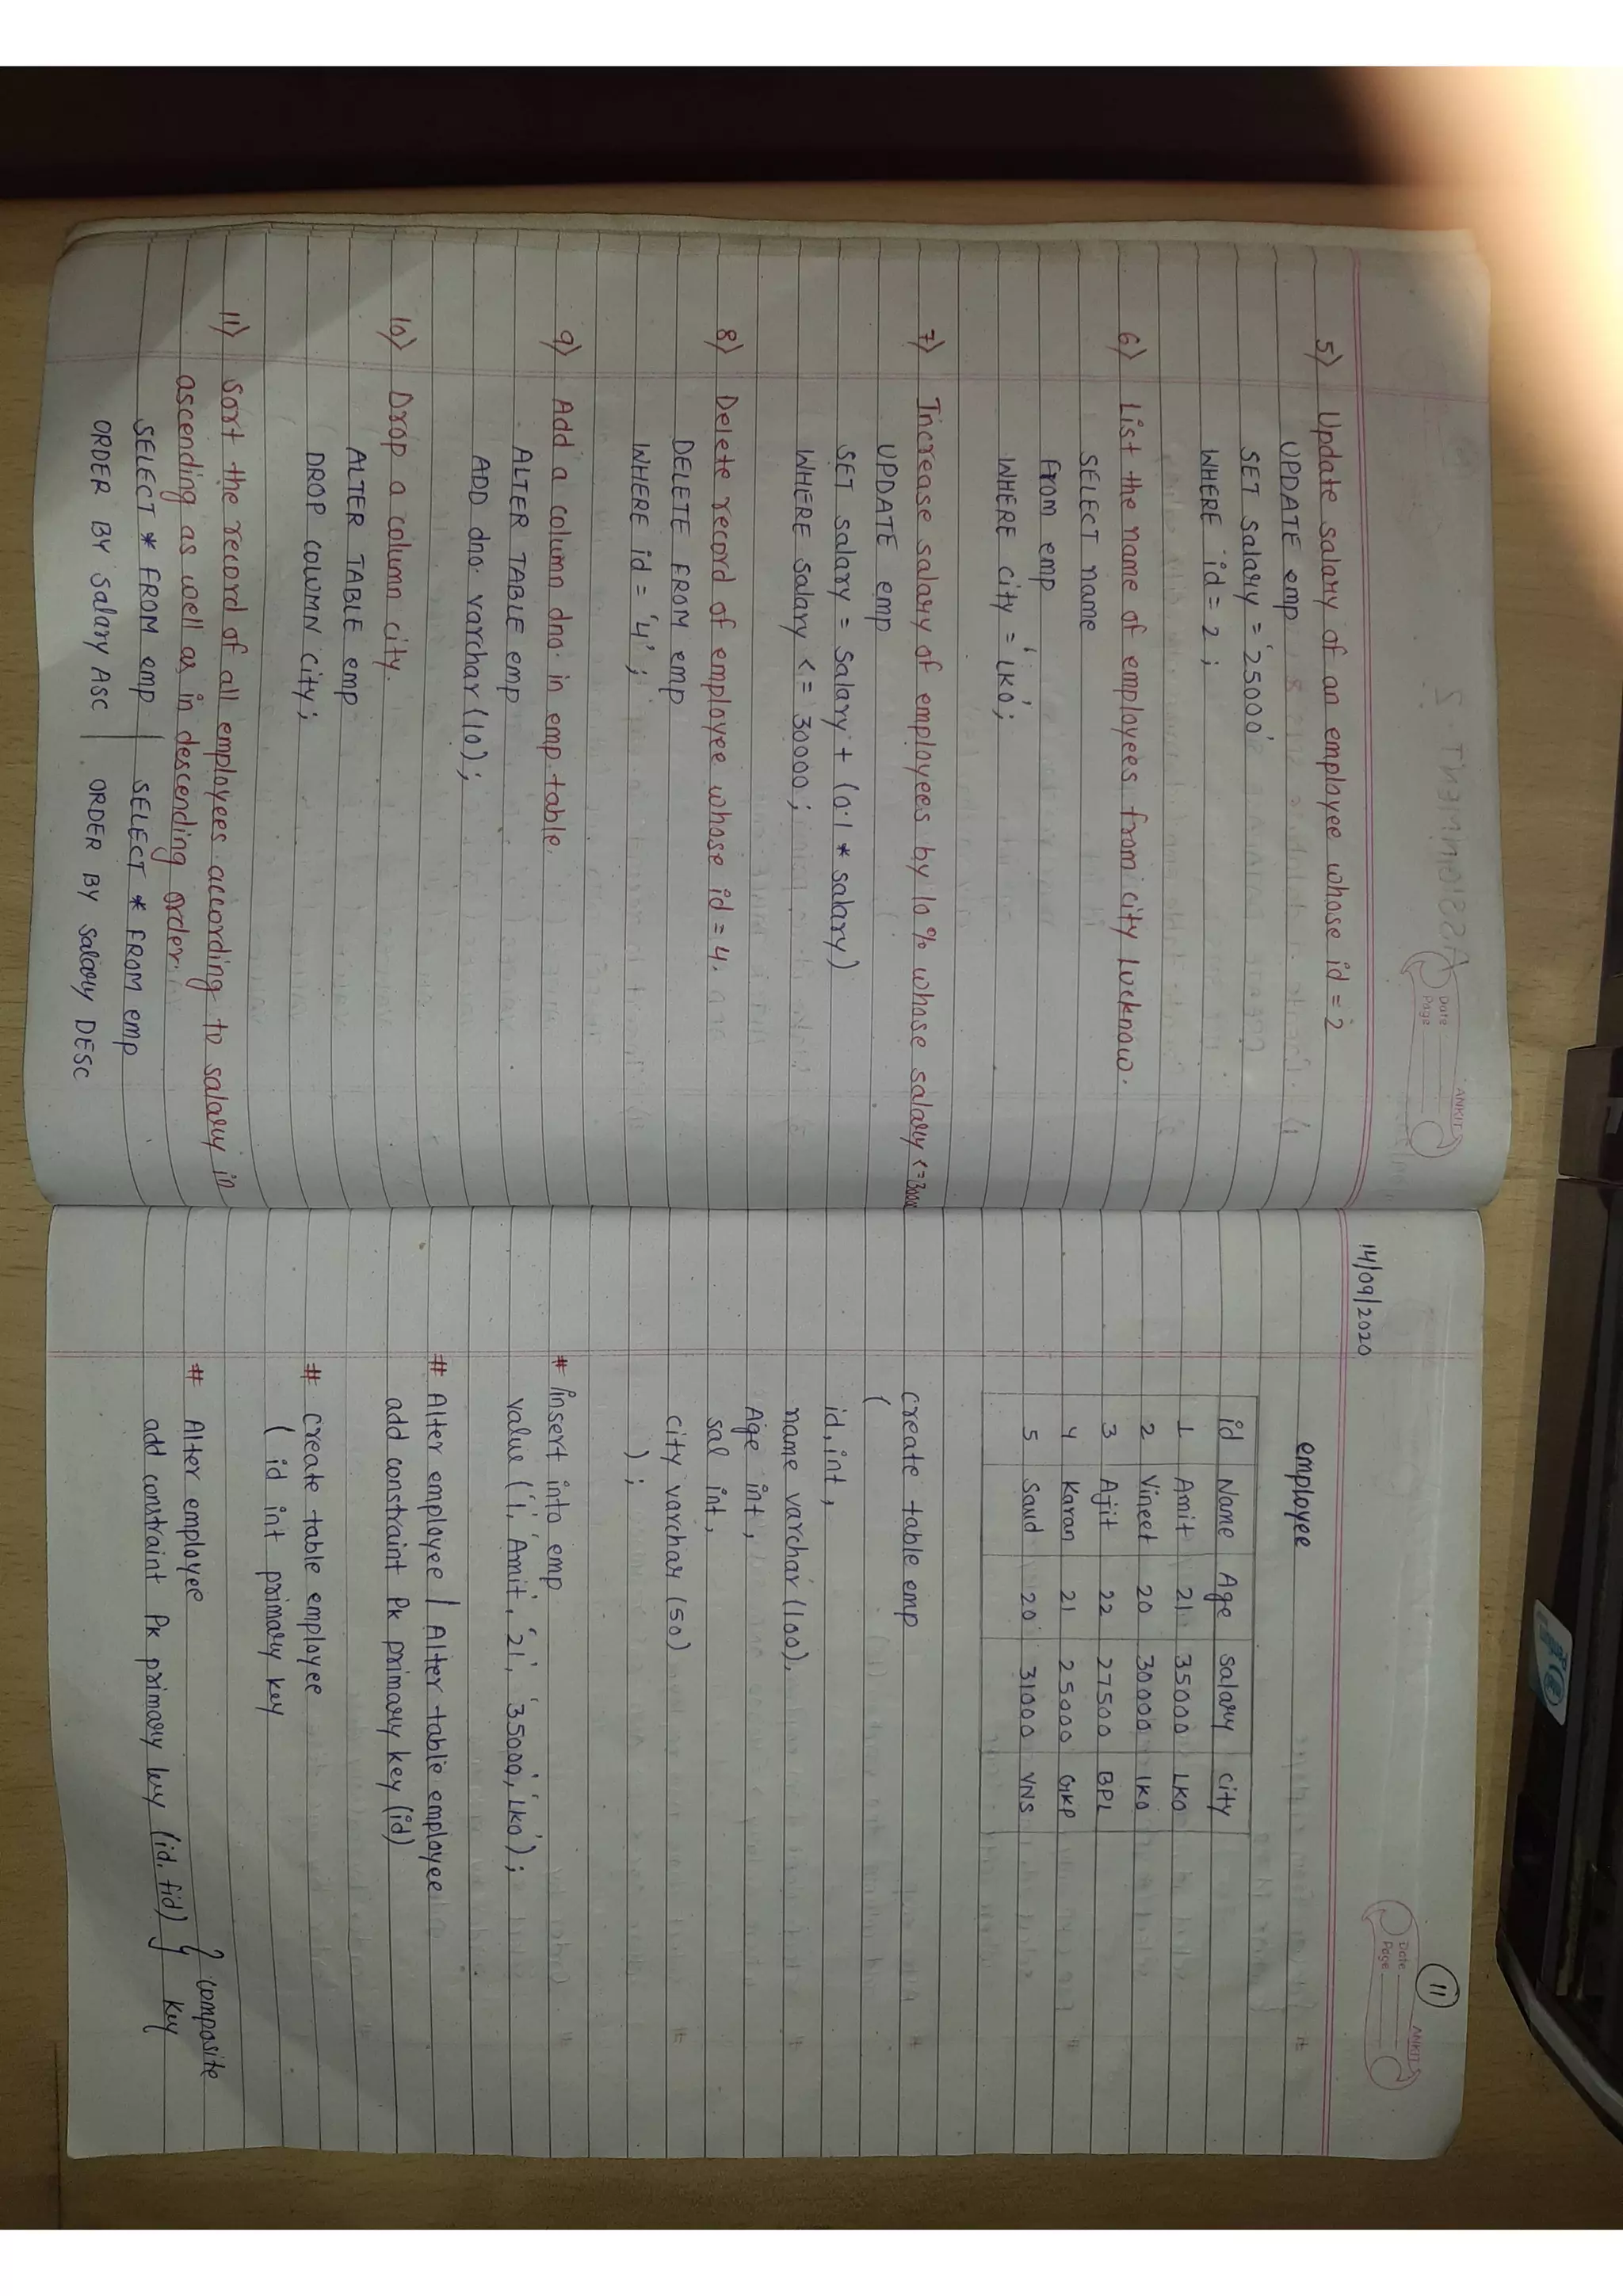 Date
Page
ANKIT
5) Update salary of an employee whose id = 2
UPDATE emp
SET salary = '25000'
WHERE id = 2 ;
6) List the name of employees from city lucknow.
SELECT name
From emp
WHERE city = 'LKO';
7) Increase salary of employees by 10 % whose salary <=30000
UPDATE emp
SET salary = salary + (0.1 * salary)
WHERE salary <= 30000 ;
8) Delete record of employee whose id = 4.
DELETE FROM emp
WHERE id = '4' ;
9) Add a column dno. in emp table.
ALTER TABLE emp
ADD dno. varchar (10) ;
10) Drop a column city.
ALTER TABLE emp
DROP COLUMN city ;
11) Sort the record of all employees according to salary in
ascending as well as in descending order.
SELECT * FROM emp | SELECT * FROM emp
ORDER BY salary ASC | ORDER BY salary DESC
11
Date
Page
ANKIT S
14/09/2020
employee
id Name Age salary city
1 Amit 21 35000 LKO
2 Vineet 20 30000 LKO
3 Ajit 22 27500 BPL
4 Karan 21 25000 GKP
5 Saud 20 31000 VNS
create table emp
(
id int ,
name varchar (100),
Age int ,
sal int ,
city varchar (50)
) ;
# insert into emp
value ('1', 'Amit', '21', '35000', 'LKO') ;
# Alter employee | Alter table employee
add constraint PK primary key (id)
# create table employee
( id int primary key
# Alter employee } composite
add constraint PK primary key (id, fid) } key